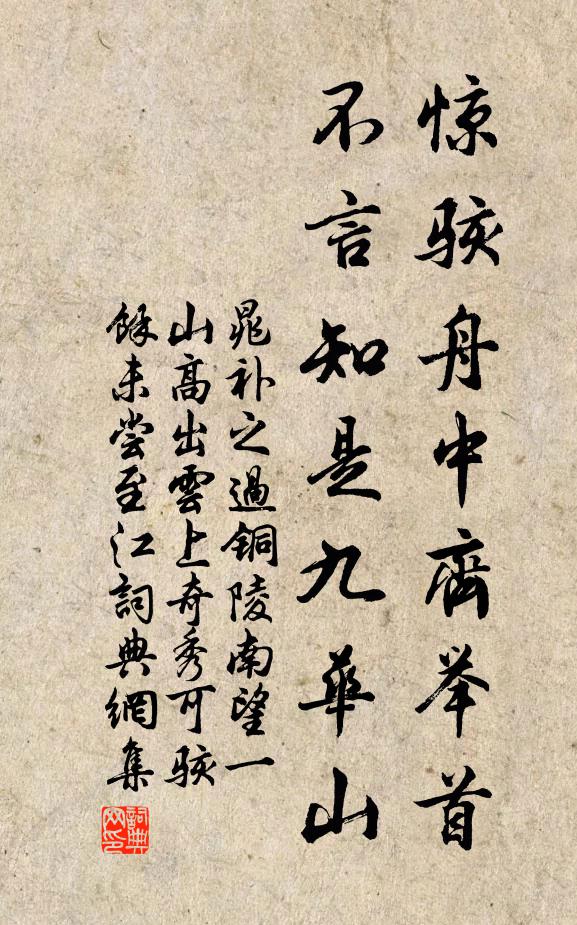 惊骇舟中齊举首
不言知是九華山
晁补之過铜陵南望一
山高出雲上奇秀可骇
餘未尝至江詞典網集
詞典网印